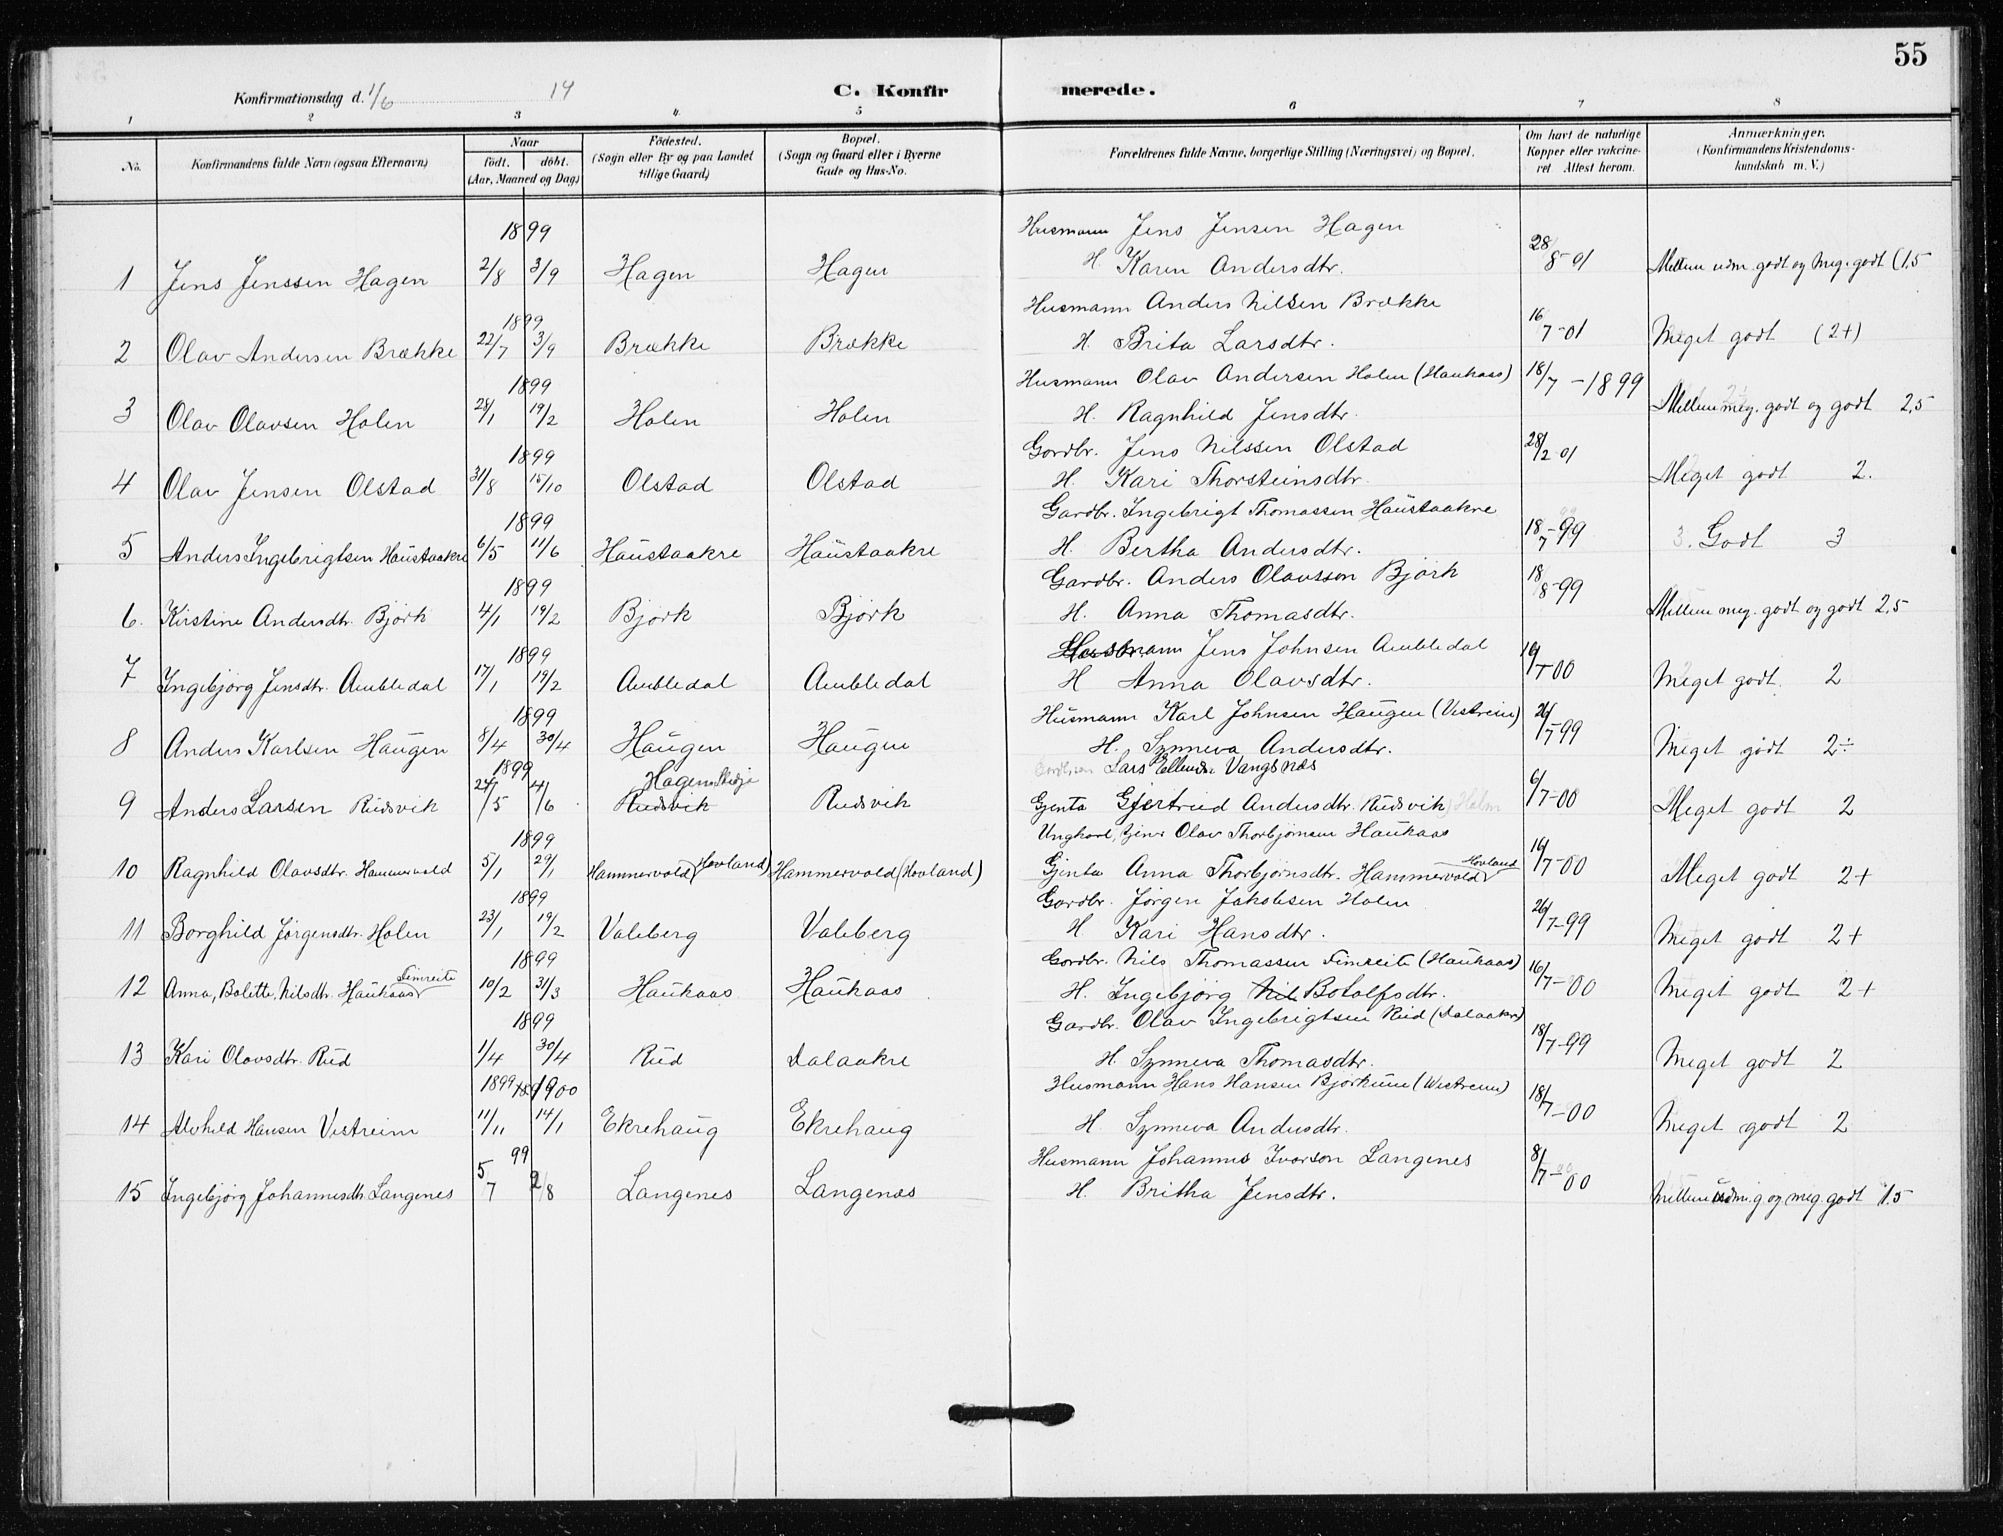 55
Konfirmationsdag d. 1/6 14 C. Konfirmerede.
1 2 3 4. 5 6 7 8
No. Konfirmandens fulde Navn (ogsaa Efternavn) Naar født. døbt. (Aar, Maaned og Dag) Födested. (Sogn eller By og paa Landet tillige Gaard) Bopæl. (Sogn og Gaard eller i Byerne Gade og Hus-No. Forældrenes fulde Navne, borgerlige Stilling (Næringsvei) og Bopæl. Om havt de naturlige Kopper eller vakcineret Attest herom. Anmærkninger. (Konfirmandens Kristendomskundskab m. V.)
1899 Husmann Jens Jensen Hagen
1 Jens Jenssen Hagen 2/8 3/9 Hagen Hagen H. Karen Andersdtr. 28/8-01 Mellem udm. godt og meg. godt (1,5
1899 Husmann Anders Nilsen Brække
2 Olav Andersen Brække 22/7 3/9 Brække Brække H. Brita Larsdtr. 16/7-01 Meget godt (2+)
1899 Husmann Olav Andersen Holen (Haukaas)
3 Olav Olavsen Holen 28/1 19/2 Holen Holen H. Ragnhild Jensdtr. 18/7-1899 Mellem meg. godt og godt 2,5
1899 Gardbr. Jens Nilssen Olstad
4 Olav Jensen Olstad 31/8 15/10 Olstad Olstad H. Kari Thorsteinsdtr. 28/2 01 Meget godt 2.
1899 Gardbr. Ingebrigt Thomassen Haustaakre
5 Anders Ingebrigtsen Haustaakre 6/5 11/6 Haustaakre Haustaakre H. Bertha Andersdtr. 18/7-99 3. Godt 3
1899 Gardbr. Anders Olavsson Bjørk
6. Kirstine Andersdtr. Bjørk 4/1 19/2 Bjørk Bjørk H. Anna Thomasdtr. 18/8-99 Mellem meg. godt og godt 2,5
1899 Husmann Jens Johnsen Ambledal
7 Ingebjørg Jensdtr. Ambledal 17/1 19/2 Ambledal Ambledal H Anna Olavsdtr. 19/7-00 Meget godt. 2
1899 Husmann Karl Johnsen Haugen (Vestreim)
8 Anders Karlsen Haugen 8/4 30/4 Haugen Haugen H. Synneva Andersdtr. 26/7-99 Meget godt 2÷
1899 Hagen Lars Ellends. Vangsnæs
9 Anders Larsen Rudsvik 24/5 4/6 Rudsvik Rudsvik Gjenta Gjertrud Andersdtr. Rudsvik Holm 6/7-00 Meget godt 2
1899 Ungkarl, Olav Thorbjørnsen Haukaas
10 Ragnhild Olavsdtr. Hammervold 5/1 29/1 Hammervold (Hovland) Hammervold (Hovland) Gjenta Anna Thorbjørnsdtr. Hammervold Hovland 19/7-00 Meget godt 2+
1899 Gardbr. Jørgen Jakobsen Holen
11 Borghild Jørgensdtr. Holen 23/1 19/2 Valeberg Valeberg H Kari Hansdtr. 26/7-99 Meget godt 2+
1899 Gardbr. Nils Thomassen Fimreite (Haukaas)
12 Anna, Bolette, Nilsdtr. Haukaas Fimreite 10/2 31/3 Haukaas Haukaas H. Ingebjørg Nil Botolfsdtr. 16/7-00 Meget godt 2+
1899 Gardbr. Olav Ingebrigtsen Rud (Dalaakre)
13 Kari Olavsdtr. Rud 1/4 30/4 Rud Dalaakre H. Synneva Thomasdtr. 18/7-99 Meget godt 2
1899 1900 Husmann Hans Hansen Bjørkum (Westreim)
14 Alvhild Hansen Vestreim 11/11 14/1 Ekrehaug Ekrehaug H. Synneva Andersdtr. 18/7-00 Meget godt 2
99 Husmann Johannes Ivarson Langenes
15 Ingebjørg Johannesdtr. Langenes 5/7 2/8 Langenes Langenæs H. Britha Jensdtr. 8/7-00 Mellem udm. g og meg. godt 1.5